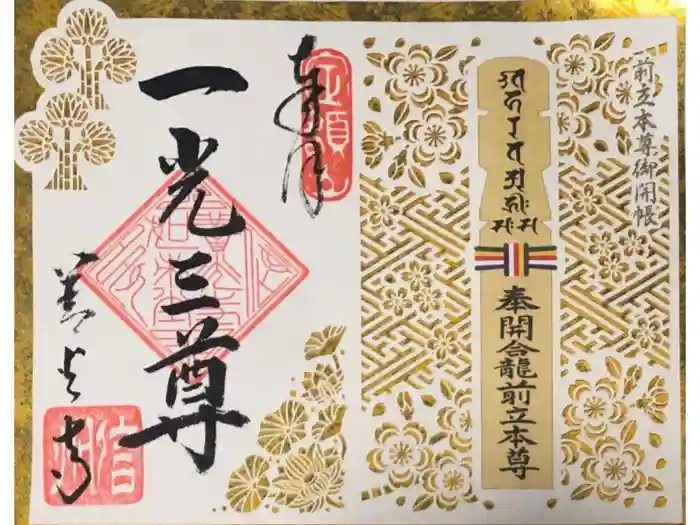 前立本尊御開帳
奉開合龍前立本尊
奉拝
定額山
一光三尊
善光寺